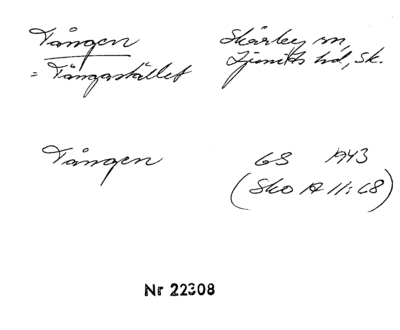 Tången Skårby sn,
= Tångastället Ljunits hd, Sk.
Tången GS 1943
(Sko A 11:68)
Nr 22308